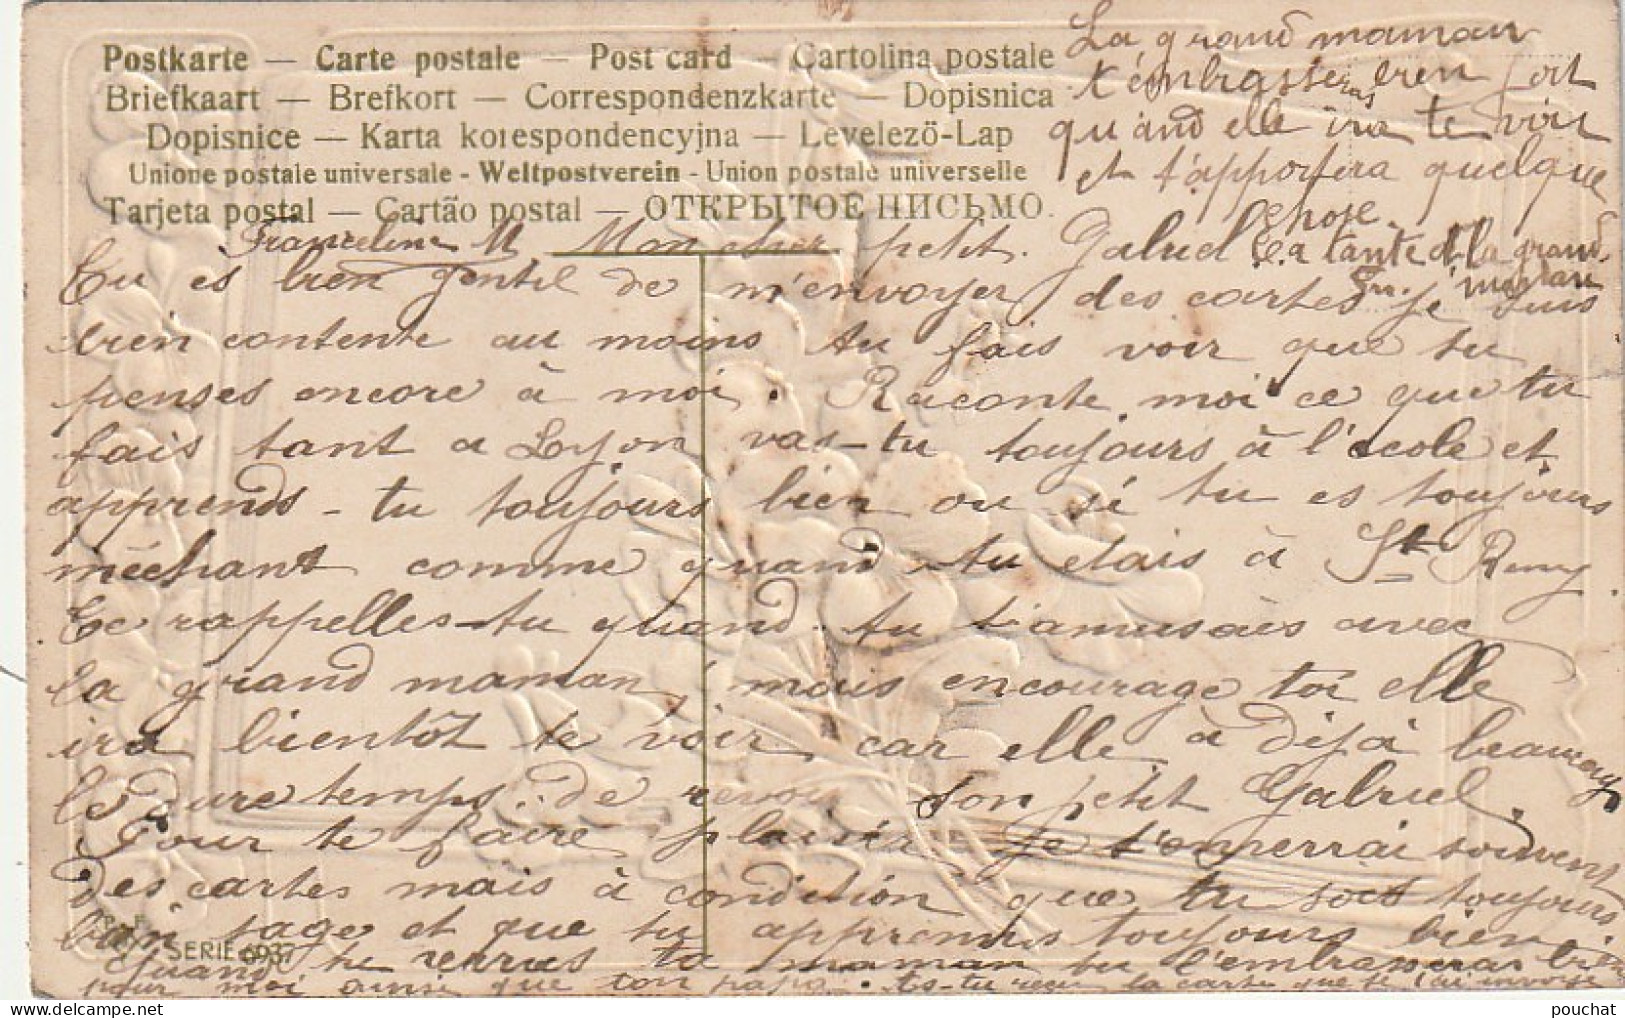 Postkarte — Carte postale — Post card — Cartolina postale
Briefkaart — Brefkort — Correspondenzkarte — Dopisnica
Dopisnice — Karta korespondencyjna — Levelezö-Lap
Unione postale universale - Weltpostverein - Union postale universelle
Tarjeta postal — Cartão postal — ОТКРЫТОЕ ПИСЬМО.
La grand maman
t'embrasseras bien fort
quand elle ira te voir
et t'apportera quelque
chose.
Franceline M Mon cher petit Gabriel
La tante et la grand
maman
Tu es bien gentil de m'envoyer des cartes je suis
bien contente au moins tu fais voir que tu
penses encore à moi. Raconte moi ce que tu
fais tant a Lyon vas-tu toujours à l'école et
apprends-tu toujours bien ou si tu es toujours
méchant comme quand tu etais à St Remy.
Te rappelles-tu quand tu t'amusais avec
la grand maman, mais encourage toi elle
ira bientôt te voir car elle à déjà beaucoup
le dure temps de revoir son petit Gabriel.
Pour te faire plaisir je t'enverrai souvent
des cartes mais à condition que tu sois toujours
bien sage et que tu apprennes toujours bien
SERIE 6937
Quand tu verras ta maman tu l'embrasseras bien
pour moi ainsi que ton papa. As-tu reçu la carte que je t'ai envoyé